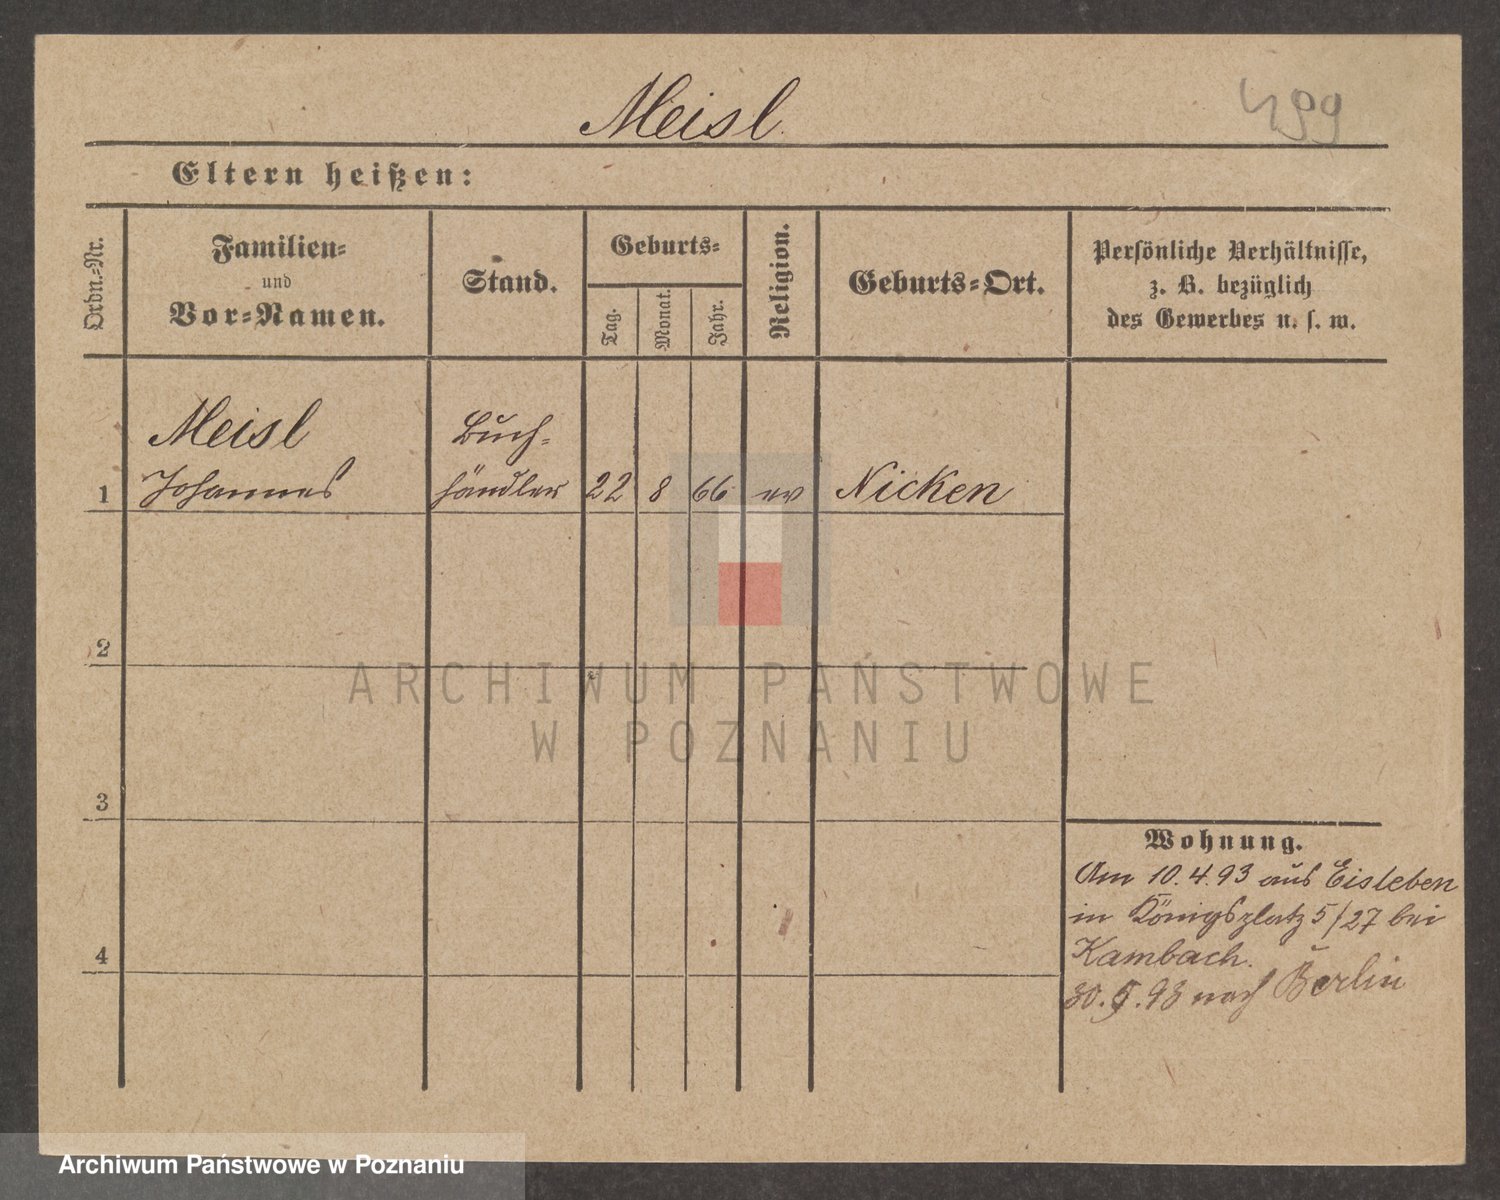 Meisl
499
Eltern heißen:
Ordn.-Nr.
Familien-
und
Vor-Namen.
Stand.
Geburts-
Tag.
Monat.
Jahr.
Religion.
Geburts-Ort.
Persönliche Verhältnisse,
z. B. bezüglich
des Gewerbes u. s. w.
Meisl
Johannes
Buch-
händler
1
22
8
66
ev
Nicken
2
ARCHIWUM PAŃSTWOWE
W POZNANIU
3
Wohnung.
Am 10.4.93 aus Eisleben
in Königsplatz 5/27 bei
Kambach.
30. 93 nach Berlin
4
Archiwum Państwowe w Poznaniu